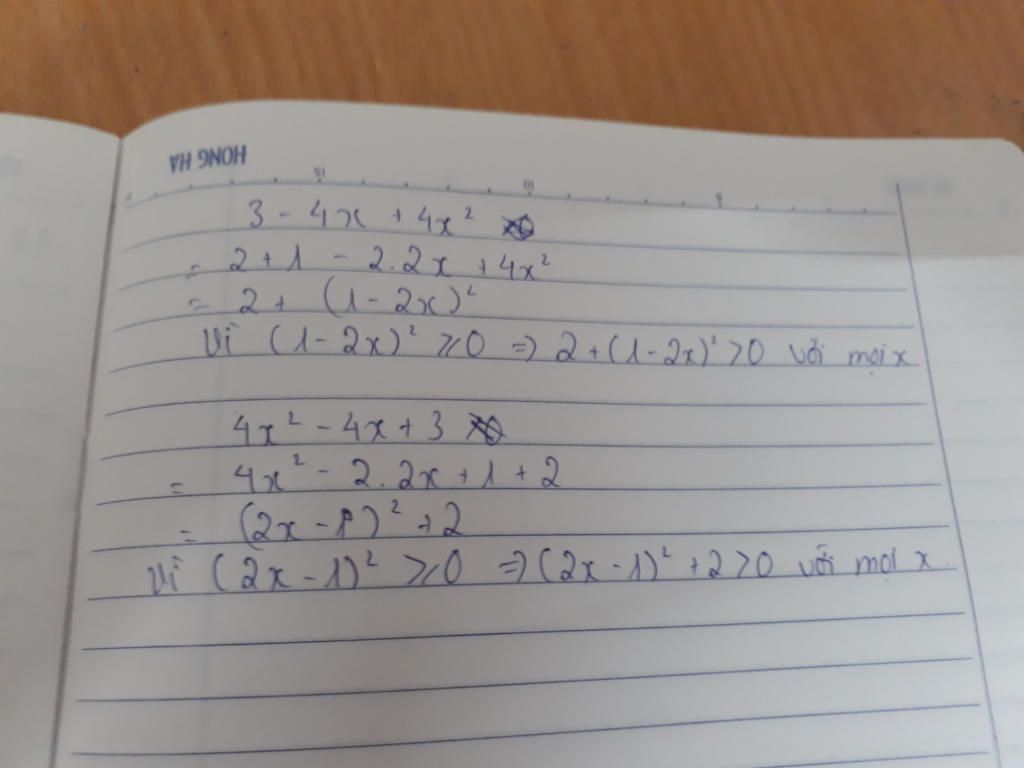 HONG HA
3 - 4x + 4x²
= 2 + 1 - 2.2x + 4x²
= 2 + (1 - 2x)²
Vì (1 - 2x)² ⩾ 0 => 2 + (1 - 2x)² > 0 với mọi x
4x² - 4x + 3
= 4x² - 2.2x + 1 + 2
= (2x - 1)² + 2
Vì (2x - 1)² ⩾ 0 => (2x - 1)² + 2 > 0 với mọi x.